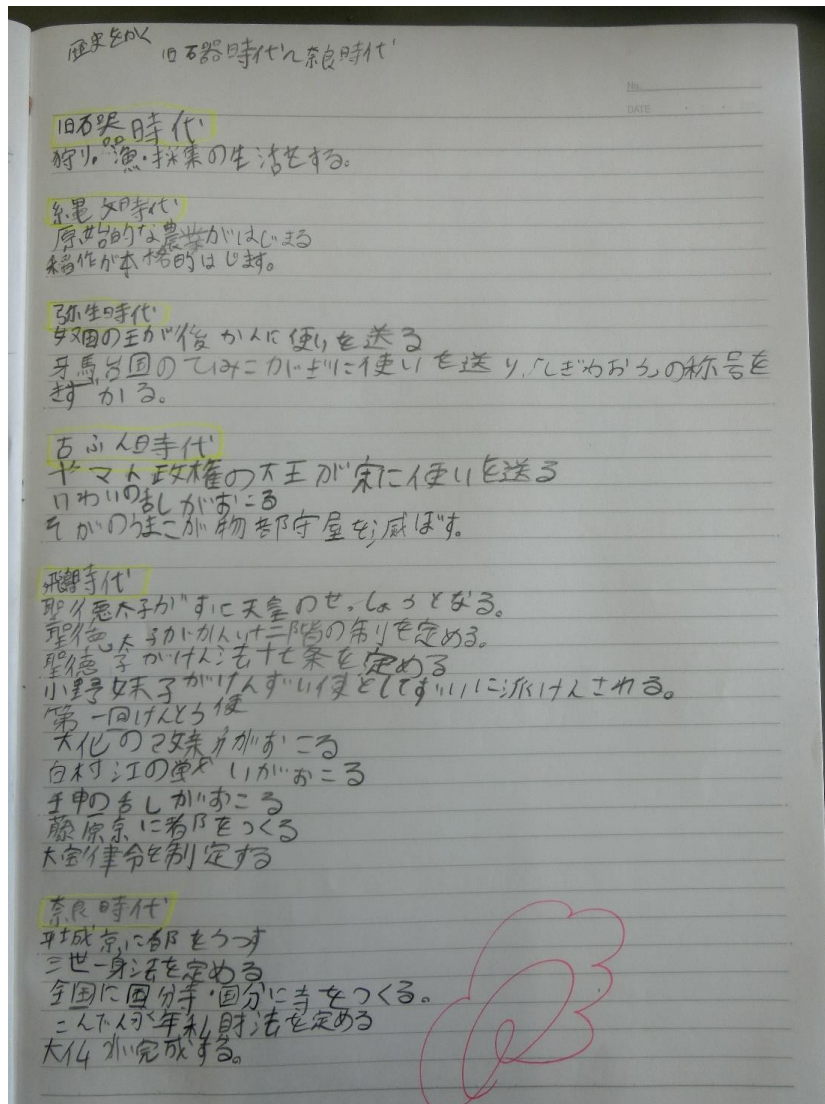 歴史をかく 旧石器時代〜奈良時代
No.
DATE
旧石器時代
狩り・漁・採集の生活をする。
縄文時代
原始的な農業がはじまる
稲作が本格的はじます。
弥生時代
奴国の王が後かんに使いを送る
牙馬台国のひみこがぎに使いを送り、「しぎわおう」の称号を
さずかる。
古ふん時代
ヤマト政権の大王が宋に使いを送る
いわいの乱しがおこる
そがのうまこが物部守屋を滅ぼす。
飛鳥時代
聖徳太子がすいこ天皇のせっしょうとなる。
聖徳太子がかんい十二階の制りを定める。
聖徳子がけん法十七条を定める
小野妹子がけんずい使としてずいに派けんされる。
第一回けんとう使
大化の改新がおこる
白村江の戦いがおこる
壬申の乱しがおこる
藤原京に都をつくる
大宝律令を制定する
奈良時代
平城京に都をうつす
三世一身法を定める
全国に国分寺・国分に寺をつくる。
こんでんえい年私財法を定める
大仏が完成する。